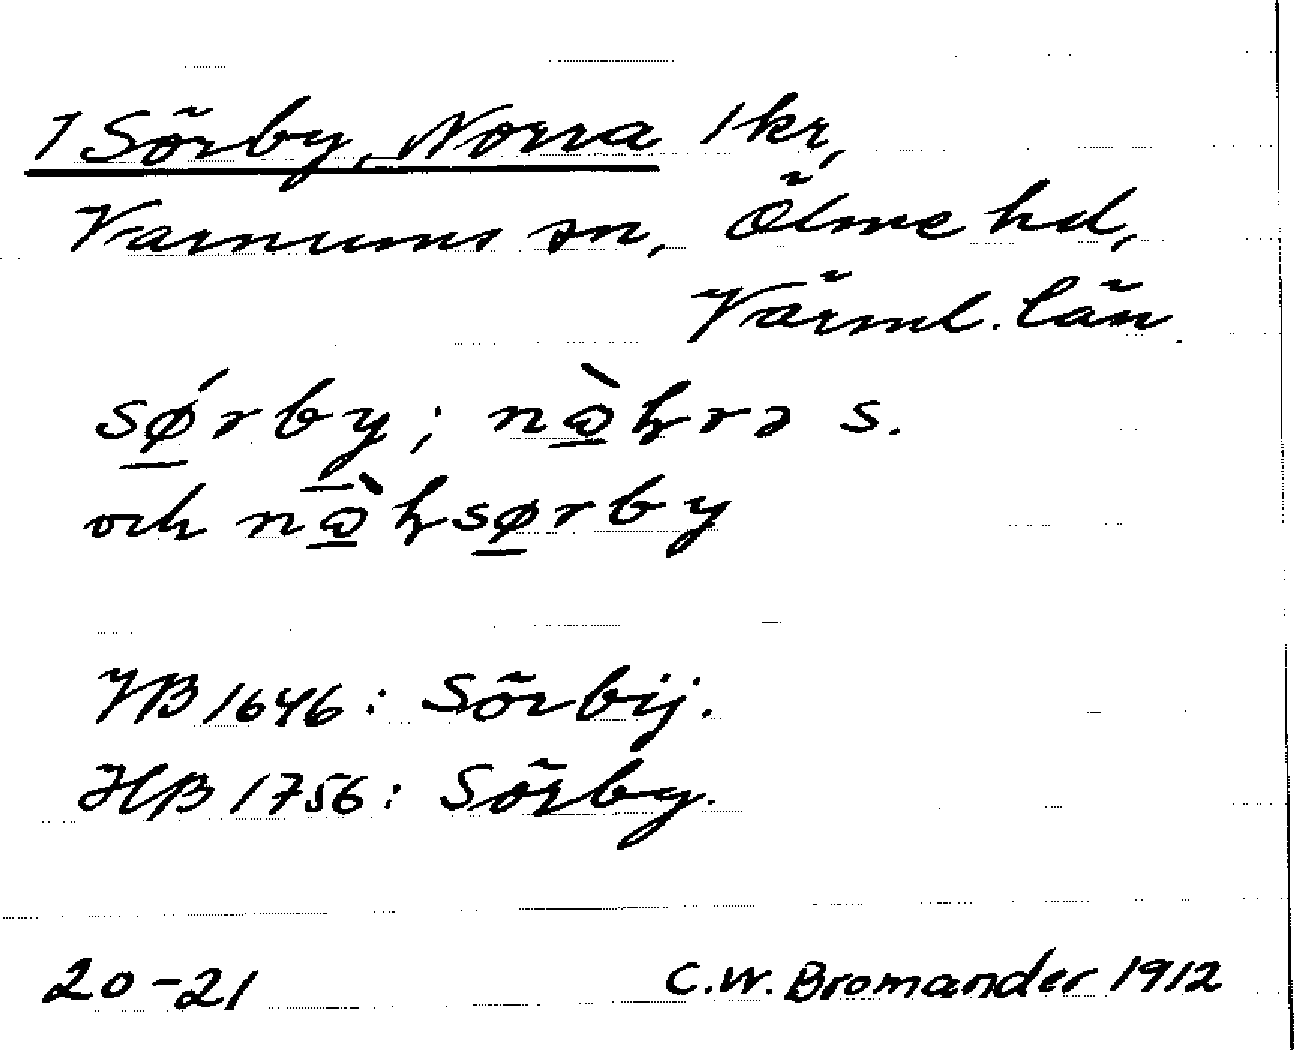 1 Sörby, Norra 1 kr,
Varnums sn, Ölme hd,
Värml. län.
sǿ̲rby; nɷ̲̀ꜧrə s.
och nɷ̲̀ꜧsø̲rby
JB 1646: Sörbij.
HB 1756: Sörby.
20-21 C.W. Bromander 1912